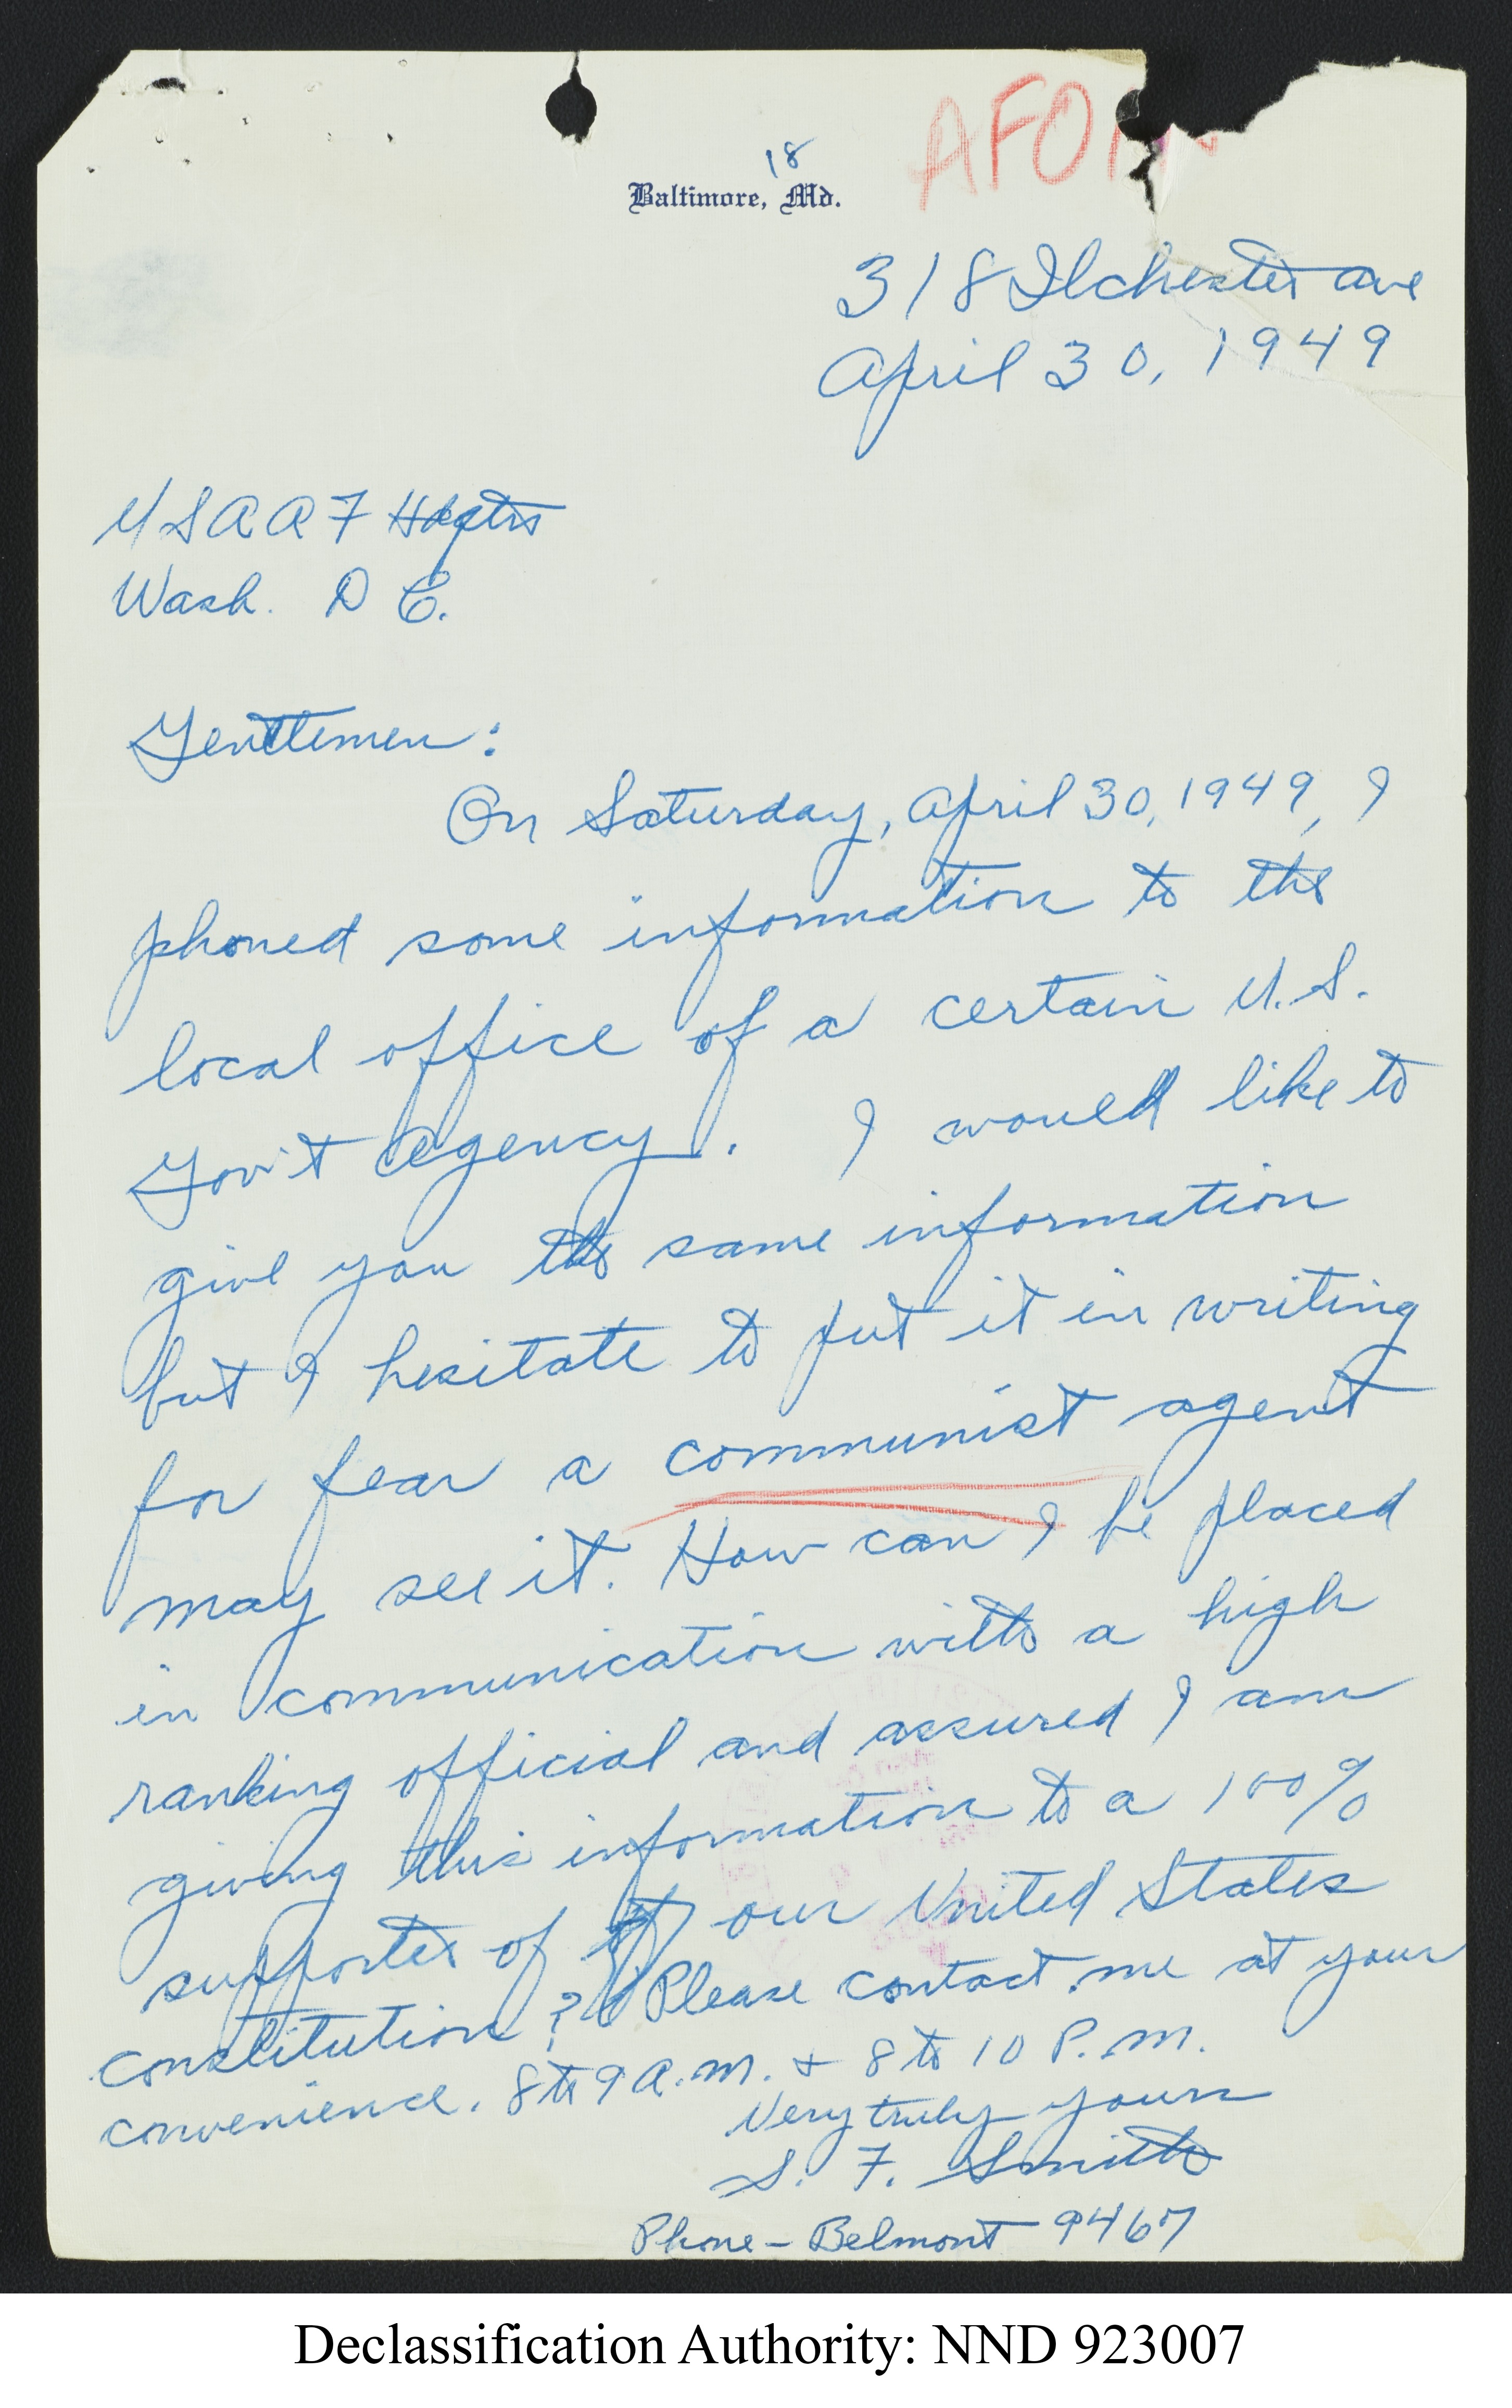 AFO
18
Baltimore, Md.
318 Ilchester Ave
April 30, 1949
USAAF Hdqtrs
Wash. D C.
Gentlemen:
On Saturday, April 30, 1949, I
phoned some information to the
local office of a certain U.S.
Gov't Agency. I would like to
give you the same information
but I hesitate to put it in writing
for fear a communist agent
may see it. How can I be placed
in communication with a high
ranking official and assured I am
giving this information to a 100%
supporter of our United States
constitution? Please contact me at your
convenience. 8 to 9 A.M. + 8 to 10 P.M.
Very truly yours
S. F. Smith
Phone - Belmont 9467
Declassification Authority: NND 923007